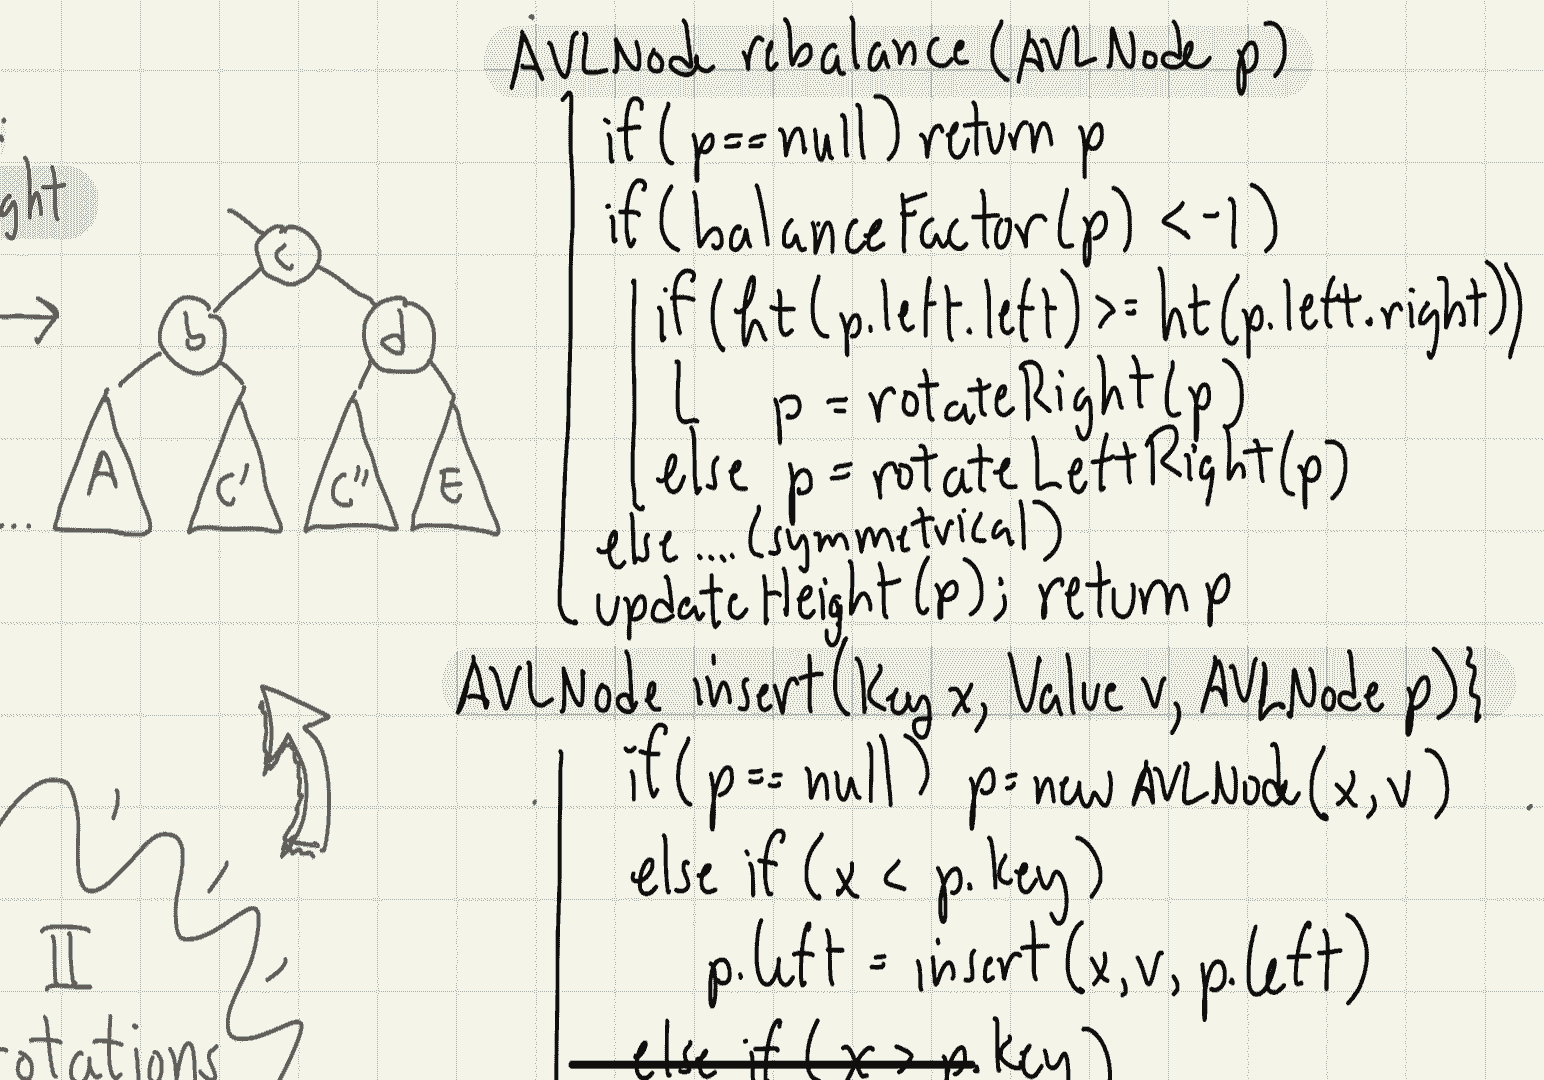 AVLNode rebalance (AVLNode p)
if (p==null) return p
if (balanceFactor(p) < -1)
if (ht(p.left.left) >= ht(p.left.right))
p = rotateRight(p)
else p = rotateLeftRight(p)
else .... (symmetrical)
updateHeight(p); return p
ght
c
b
d
A
C'
C"
E
...
AVLNode insert(Key x, Value v, AVLNode p){
if (p == null) p = new AVLNode(x,v)
else if (x < p.key)
p.left = insert(x,v, p.left)
else if (x > p.key)
II
otations